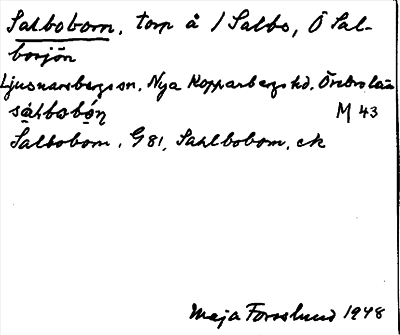 Salbobom, torp å 1 Salbo, Ö Sal-
bosjön
Ljusnarsbergs sn, Nya Kopparbergs hd, Örebro län
sálbobón M 43
Salbobom, G 81, Sahlbobom, ek
Maja Forsslund 1948